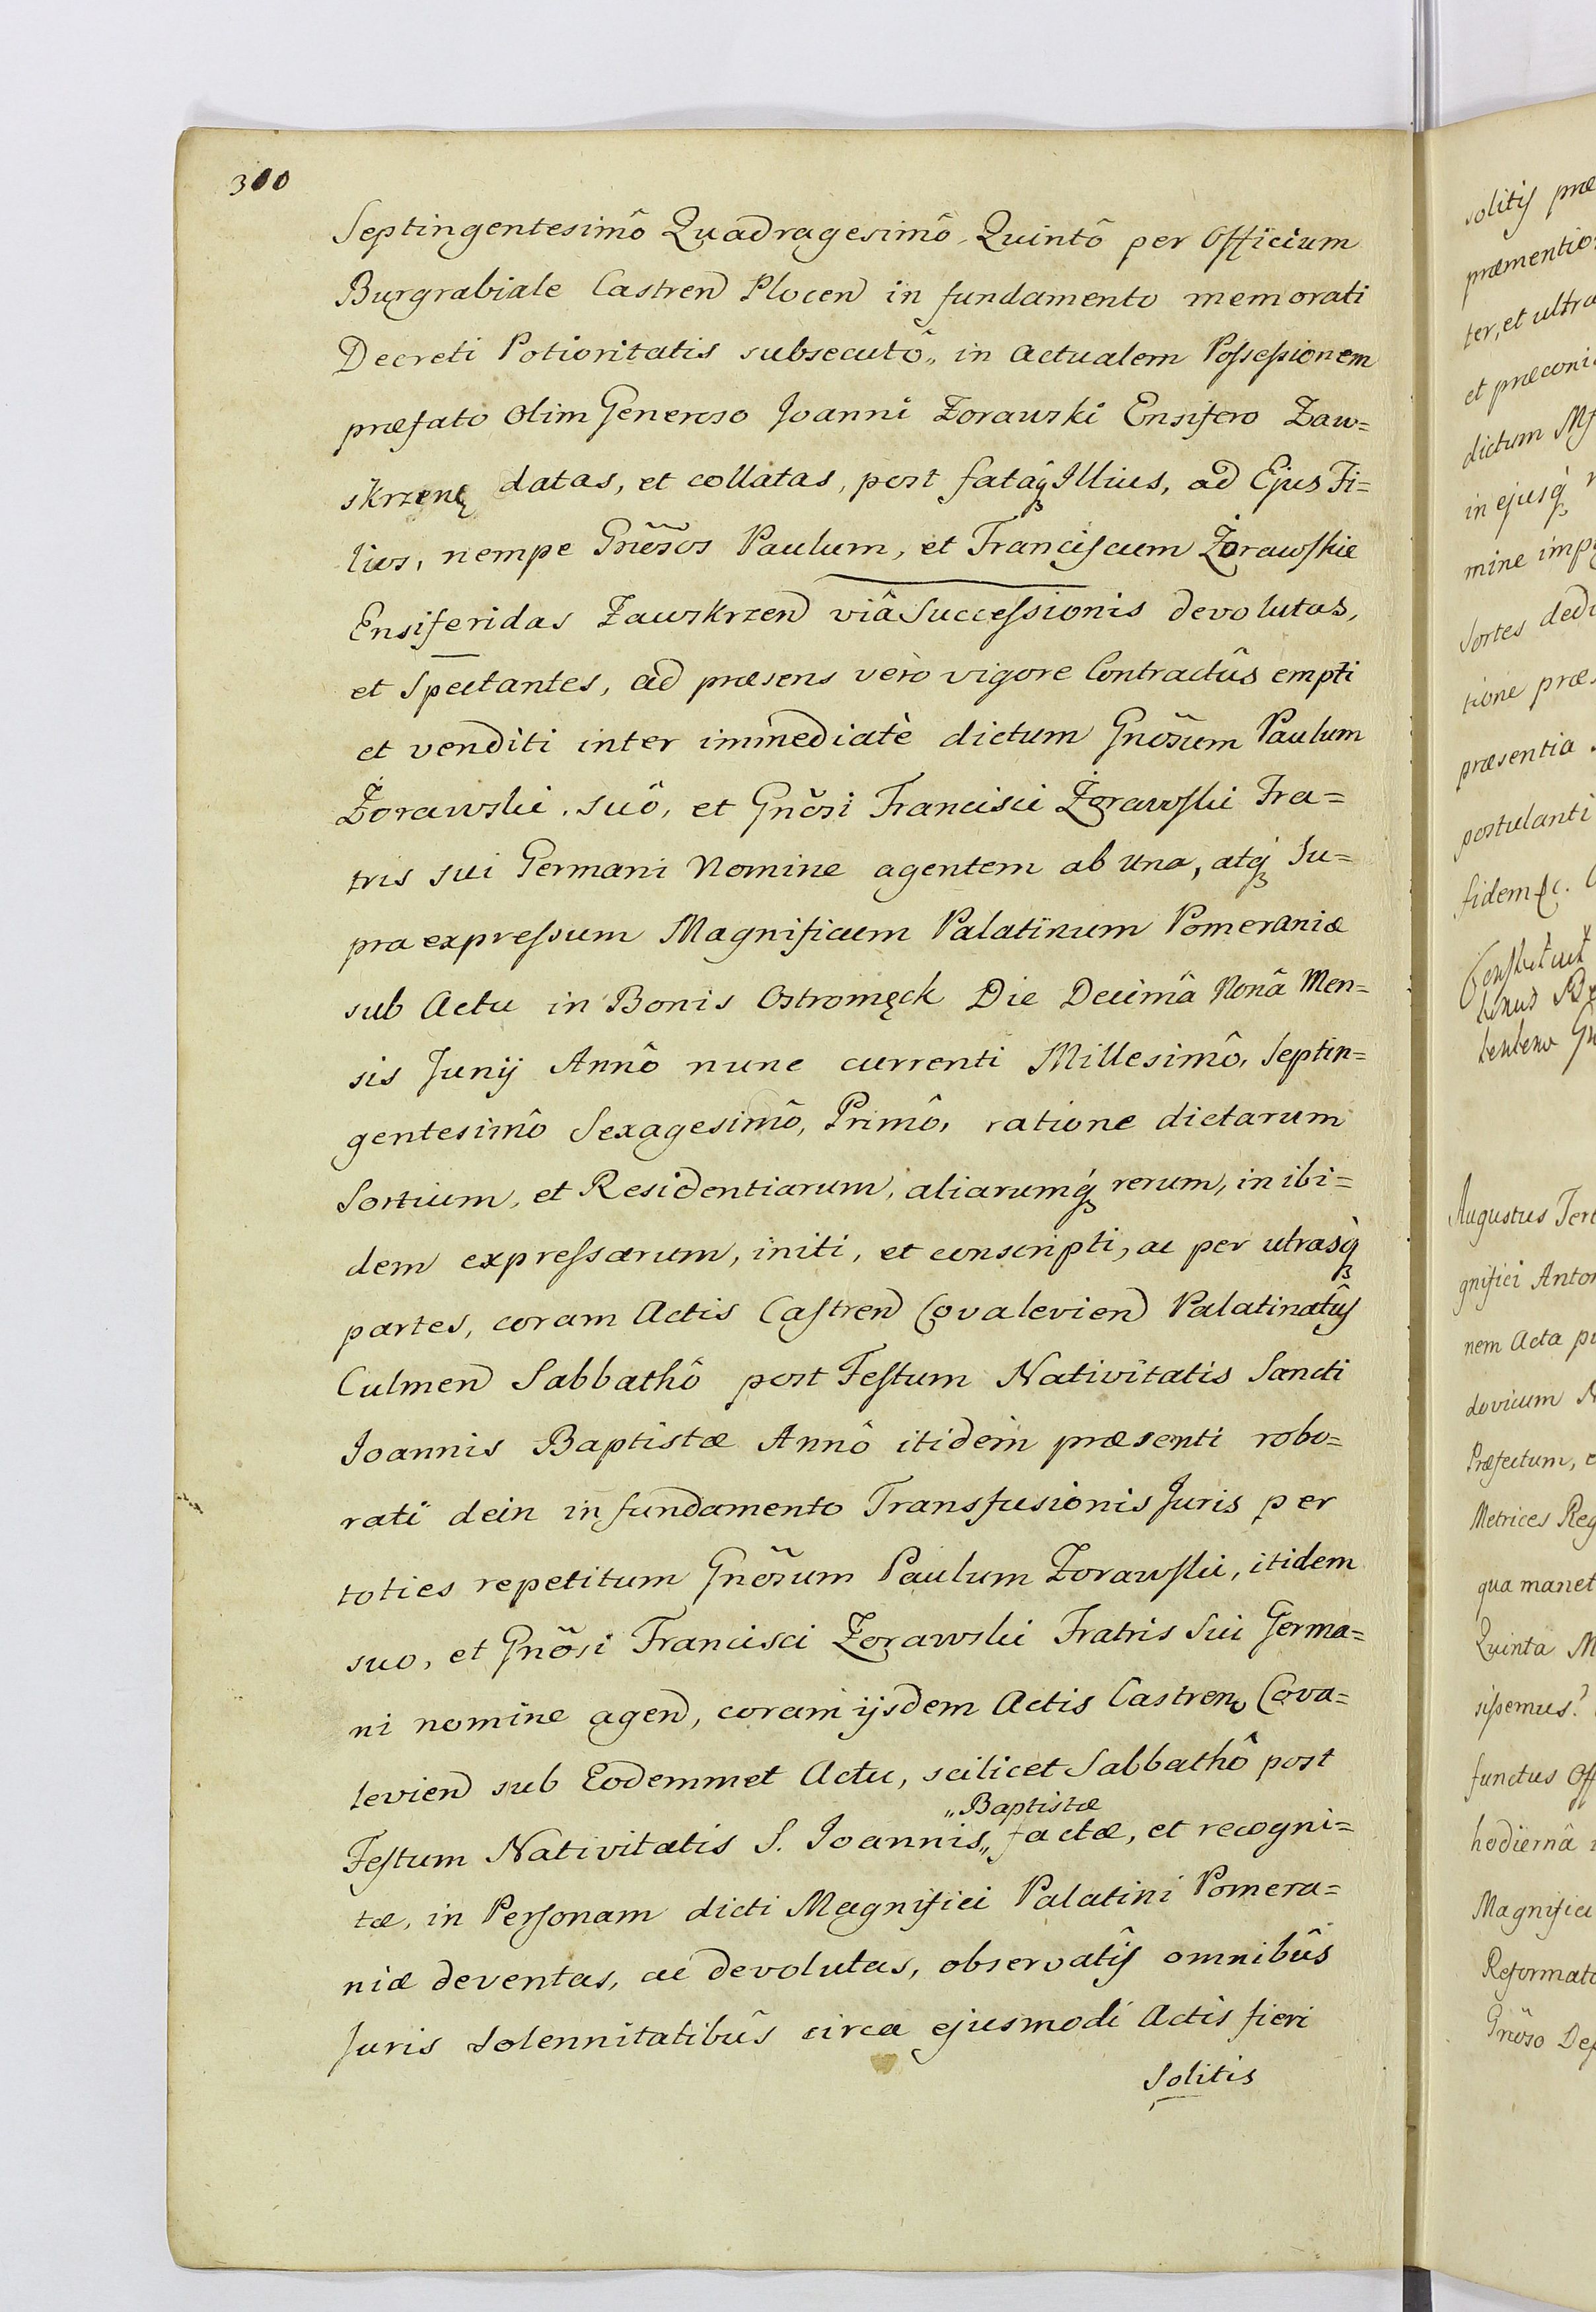 300
Septingentesimô Quadragesimô Quintô per Officium
Burgrabiale Castren Plocen in fundamento memorati
Decreti Potioritatis subsecutô, in actualem Possessionem
præfato olim Generoso Joanni Zorawski Ensifero Zaw=
skrzenę datas, et collatas, post fataq́ꝫ Illius, ad Ejus Fi=
lios, nempe Gnẽsos Paulum, et Franciscum Żorawskie
Ensiferidas Zawskrzen viâ Successionis devolutas,
et Spectantes, ad præsens verò vigore Contractûs empti
et venditi inter immediatè dictum Gnõsum Paulum
Żorawski, suô, et Gnõsi Francisci Żorawski Fra=
tris sui Germani Nomine agentem ab una, atq́ꝫ Su=
pra expressum Magnificum Palatinum Pomeraniæ
sub Actu in Bonis Ostromęck Die Decimâ Nonâ Men=
sis Junij Annô nunc currenti Millesimô, Septin=
gentesimô Sexagesimô, Primô, ratione dictarum
Sortium, et Residentiarum, aliarumq́ꝫ rerum, in ibi=
dem expressarum, initi, et conscripti, ac per utrasq̀ꝫ
partes, coram Actis Castren Covalevien Palatinatûs
Culmen Sabbathô post Festum Nativitatis Sancti
Joannis Baptistæ Annô itidem præsenti robo=
rati dein in fundamento Transfusionis Juris per
toties repetitum Gnõsum Paulum Zorawski, itidem
suo, et Gnõsi Francisci Zorawski Fratris Sui Germa=
ni nomine agen, coram ijsdem Actis Castren Cova=
levien sub Eodemmet Actu, scilicet Sabbathô post
„Baptistæ
Festum Nativitatis S. Joannis„ factæ, et recogni=
tæ, in Personam dicti Magnifici Palatini Pomera=
niæ deventas, ac devolutas, observatîs omnibûs
Juris Solennitatibûs circa ejusmodi Actis fieri
Solitis
solitis præ
præmentio
ter, et ultra
et præconi
dictum
in ejusq́ꝫ
mine imp
Sortes ded
tione præs
præsentia
postulanti
fidem &c.
Augustus Tert
gnifici Anton
nem Acta p
dovicum
Præfectum,
Metrices Reg
qua manet
Quinta M
sissemus?
functus Off
hodiernâ
Magnifici
Reformato
Gnõso Dep